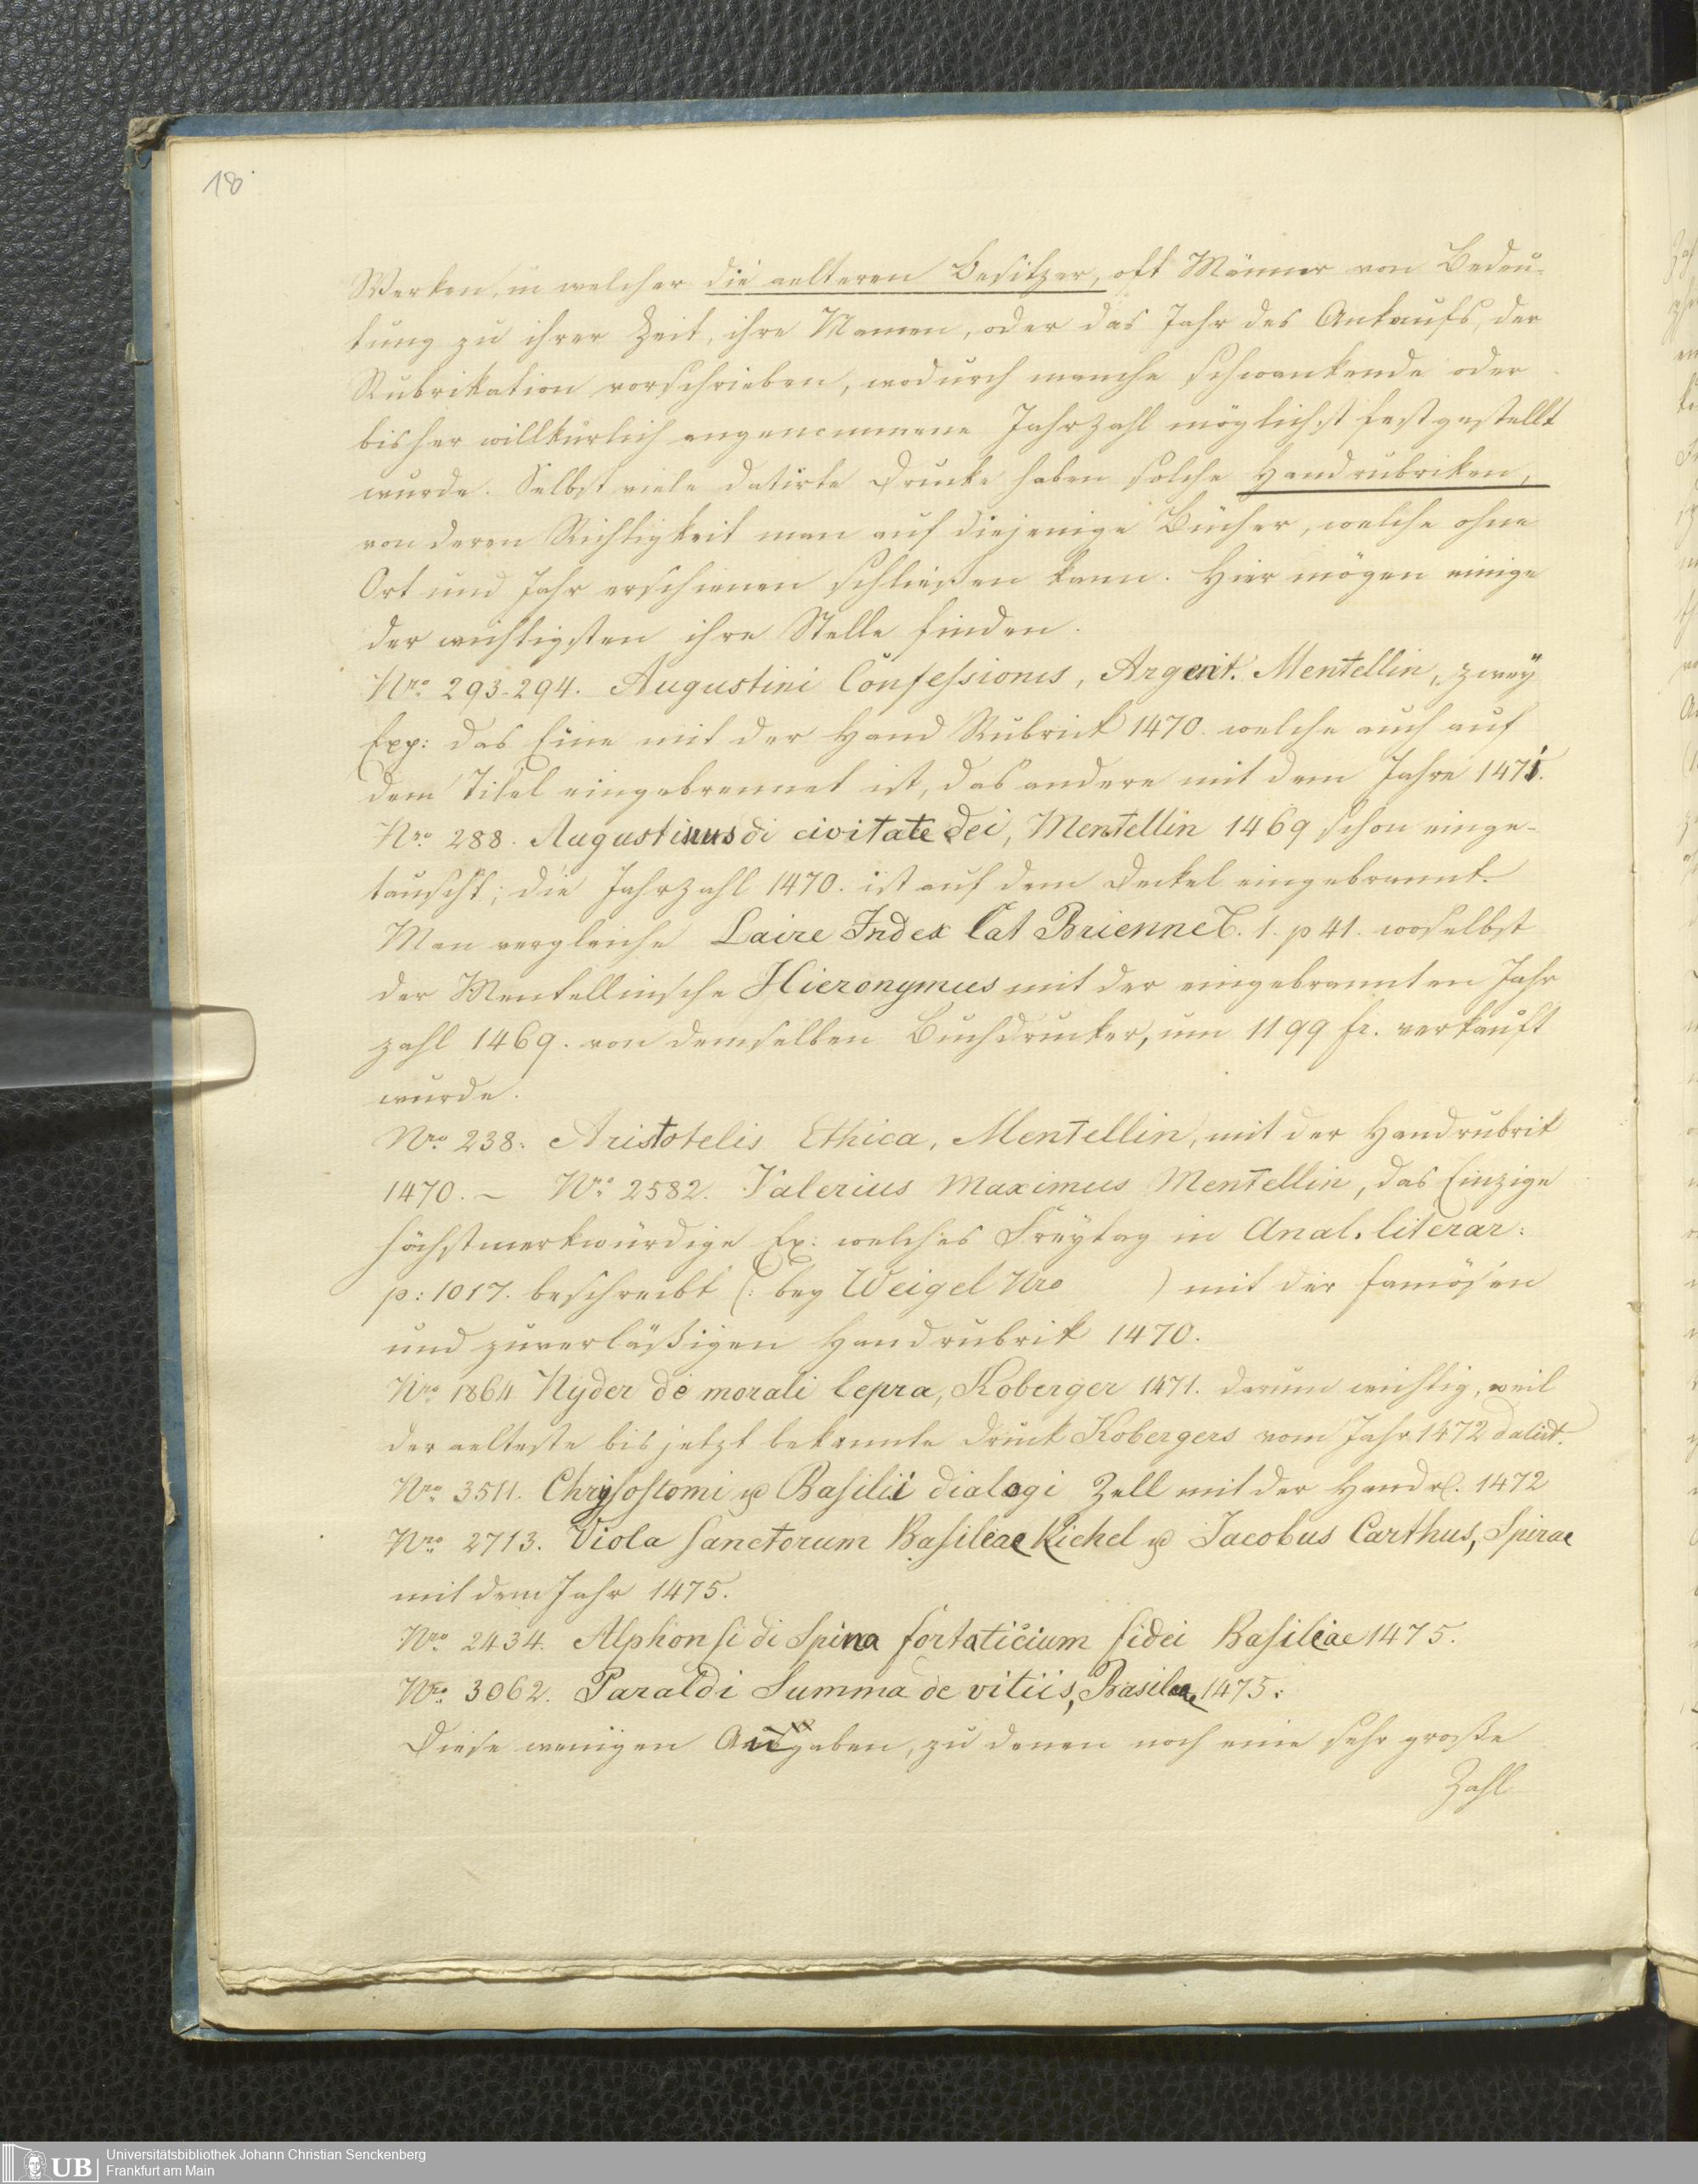 18
Werken, in welcher die aelteren Besitzer, oft Männer von Bedeu-
tung zu ihrer Zeit, ihre Namen, oder das Jahr des Ankaufs, der
Rubrikation vorschrieben, wodurch manche schwankende oder
bisher willkürlich angenommene Jahrzahl möglichst festgestellt
wurde. Selbst viele datirte Drucke haben solche Handrubriken,
von deren Richtigkeit man auf diejenige Bücher, welche ohne
Ort und Jahr erschienen schließen kann. Hier mögen einige
der wichtigsten ihre Stelle finden.
Nro. 293-294. Augustini Confessiones, Argent. Mentellin, zwey
Exp: das Eine mit der Hand Rubrick 1470. welche auch auf
dem Titel eingebrennet ist, das andere mit dem Jahre 1471.
Nro. 288. Augustinus di civitate dei, Mentellin 1469 schon einge-
tauscht; die Jahrzahl 1470. ist auf dem Deckel eingebrannt.
Man vergleiche Laire Index Cat Brienne T. 1. p 41. woselbst
der Mentellinsche Hieronymus mit der eingebrannten Jahr
zahl 1469. von demselben Buchdrucker, um 1199 fr. verkauft
wurde.
Nro. 238. Aristotelis Ethica, Mentellin, mit der Handrubrik
1470. – Nro. 2582. Valerius Maximus Mentellin, das Einzige
höchstmerkwürdige Ex: welches Freytag in Anal. literar:
p: 1017. beschreibt (: bey Weigel Nro ) mit der famösen
und zuverläßigen Handrubrik 1470.
Nro. 1864 Nyder de morali lepra, Koberger 1471. darum wichtig, weil
der aelteste bis jetzt bekannte Druck Kobergers vom Jahr 1472 datirt.
Nro. 3511. Chrysostomi & Basilii dialogi Zell mit der Handr. 1472
Nro. 2713. Viola Sanctorum Basileae Richel & Jacobus Carthus, Spirae
mit dem Jahr 1475.
Nro. 2434. Alphonsi di Spina fortaticium fidei Basileae 1475.
Nro. 3062. Paraldi Summa de vitiis, Basileae 1475.
Diese wenigen Ausgaben, zu denen noch eine sehr große
Zahl
UB
Universitätsbibliothek Johann Christian Senckenberg
Frankfurt am Main